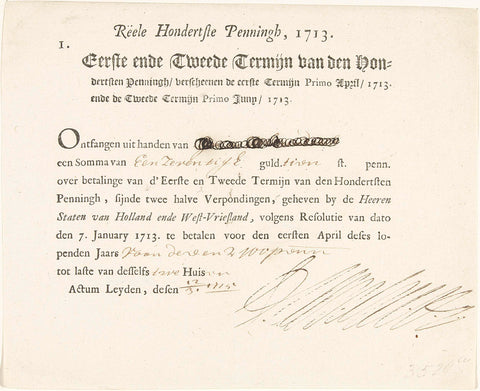 Rëele Hondertste Penningh, 1713.
1.
Eerste ende Tweede Termijn van den Hon-
dertsten Penningh/ verschenen de eerste Termijn Primo April/ 1713.
ende de Tweede Termijn Primo Juny/ 1713.
Ontfangen uit handen van
een Somma van guld. tien st. penn.
over betalinge van d'Eerste en Tweede Termijn van den Hondertsten
Penningh, sijnde twee halve Verpondingen, geheven by de Heeren
Staten van Holland ende West-Vriesland, volgens Resolutie van dato
den 7. January 1713. te betalen voor den eersten April deses lo-
penden Jaars
tot laste van desselfs twee Huisen
Actum Leyden, desen